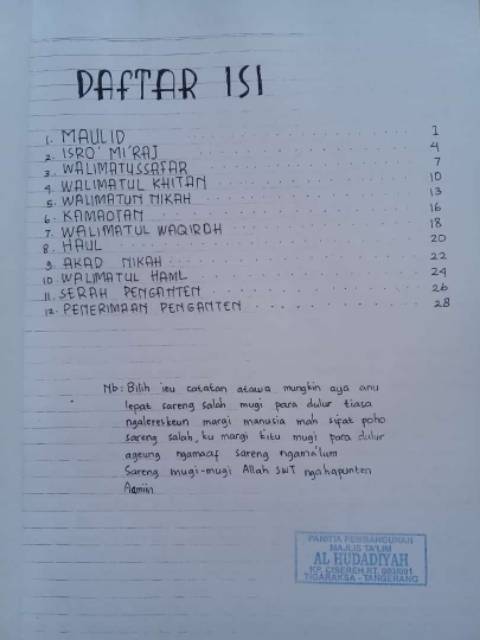 DAFTAR ISI
1. MAULID . . . . . . . . . . . . . . . . . . 1
2. ISRO' MI'RAJ . . . . . . . . . . . . . . . . . . 4
3. WALIMATUSSAFAR . . . . . . . . . . . . . . . . . . 7
4. WALIMATUL KHITAN . . . . . . . . . . . . . . . . . . 10
5. WALIMATUN NIKAH . . . . . . . . . . . . . . . . . . 13
6. KAMAOTAN . . . . . . . . . . . . . . . . . . 16
7. WALIMATUL WAQIROH . . . . . . . . . . . . . . . . . . 18
8. HAUL . . . . . . . . . . . . . . . . . . 20
9. AKAD NIKAH . . . . . . . . . . . . . . . . . . 22
10. WALIMATUL HAML . . . . . . . . . . . . . . . . . . 24
11. SERAH PENGANTEN . . . . . . . . . . . . . . . . . . 26
12. PENERIMAAN PENGANTEN . . . . . . . . . . . . . . . . . . 28
Nb: Bilih ieu catatan atawa mungkin aya anu
lepat sareng salah mugi para dulur tiasa
ngalereskeun margi manusia mah sipat poho
sareng salah, ku margi kitu mugi para dulur
ageung ngamaaf sareng ngama'lum
Sareng mugi-mugi Allah SWT ngahapunten
Aamiin
PANITIA PEMBANGUNAN
MAJLIS TA'LIM
AL HUDADIYAH
KP. CISEREH RT. 003/001
TIGARAKSA - TANGERANG